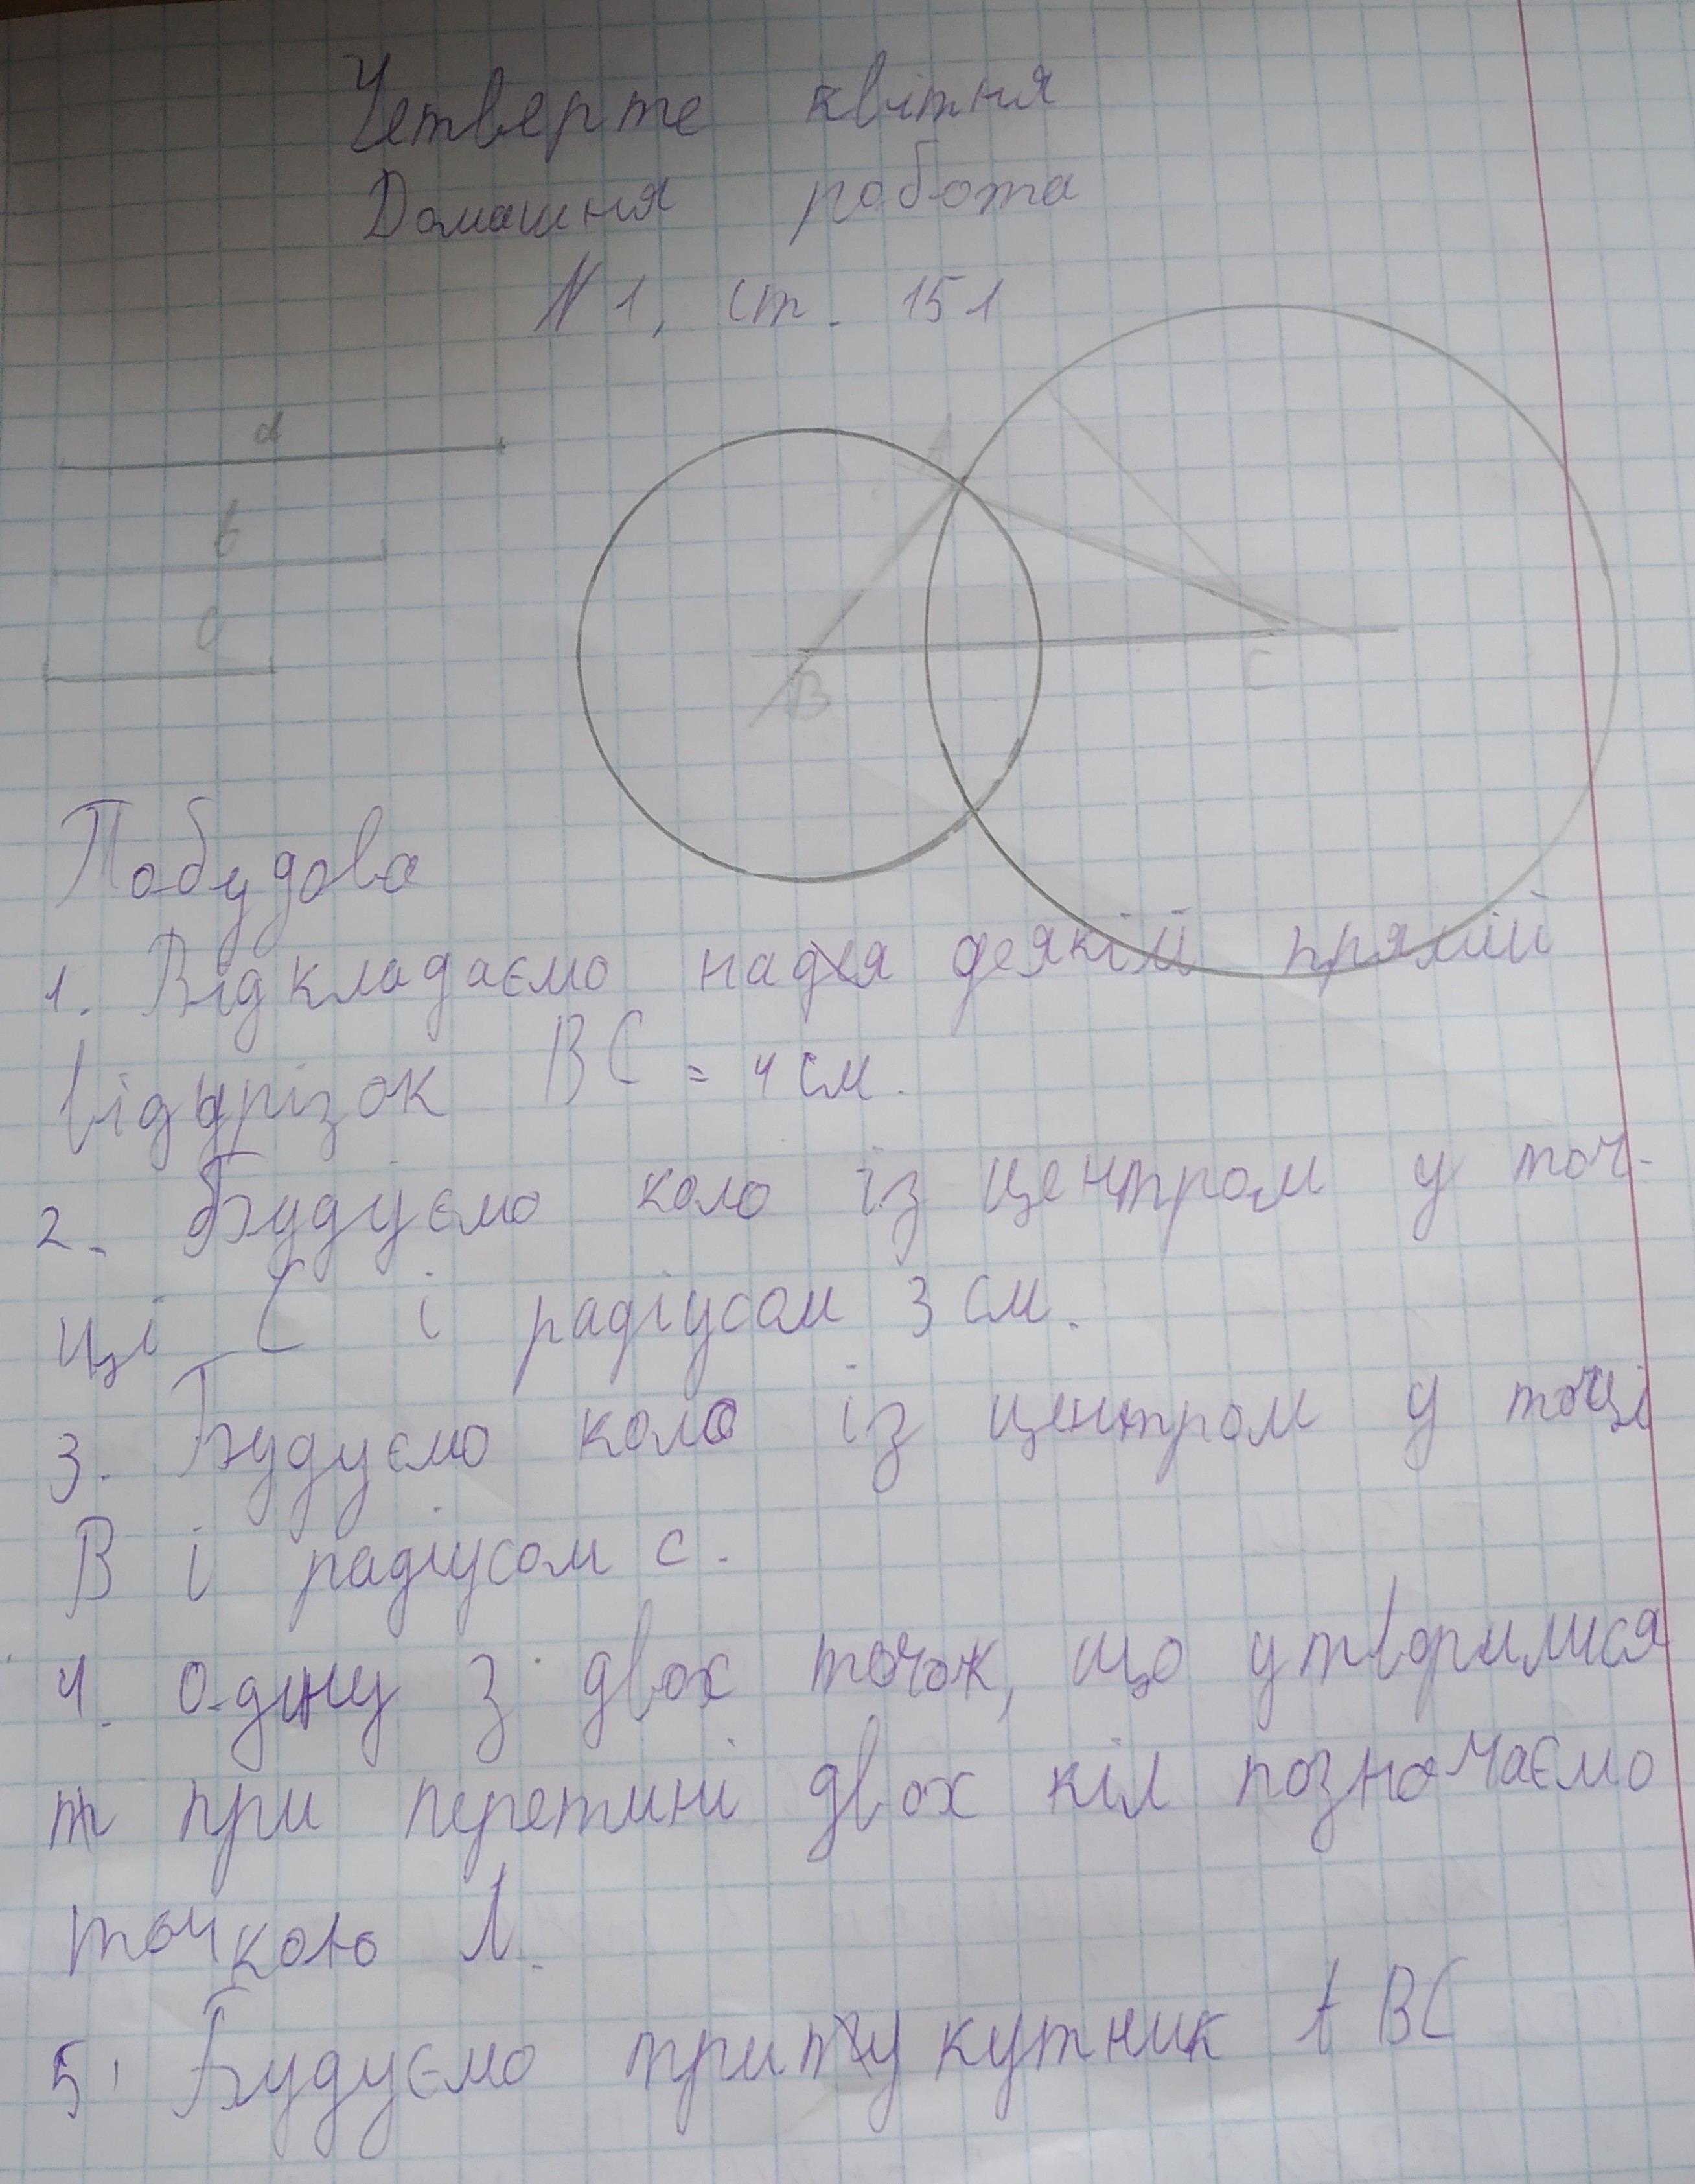 Четверте квітня
Домашня робота
N 1, ст. 151
a
b
c
A
B
C
Побудова
1. Відкладаємо на деякій прямій
відрізок BC = 4 см.
2. Будуємо коло із центром у точ-
ці C і радіусом 3 см.
3. Будуємо коло із центром у точці
B і радіусом c.
4. Одну з двох точок, що утворилися
при перетині двох кіл позначаємо
точкою A.
5. Будуємо трикутник ABC